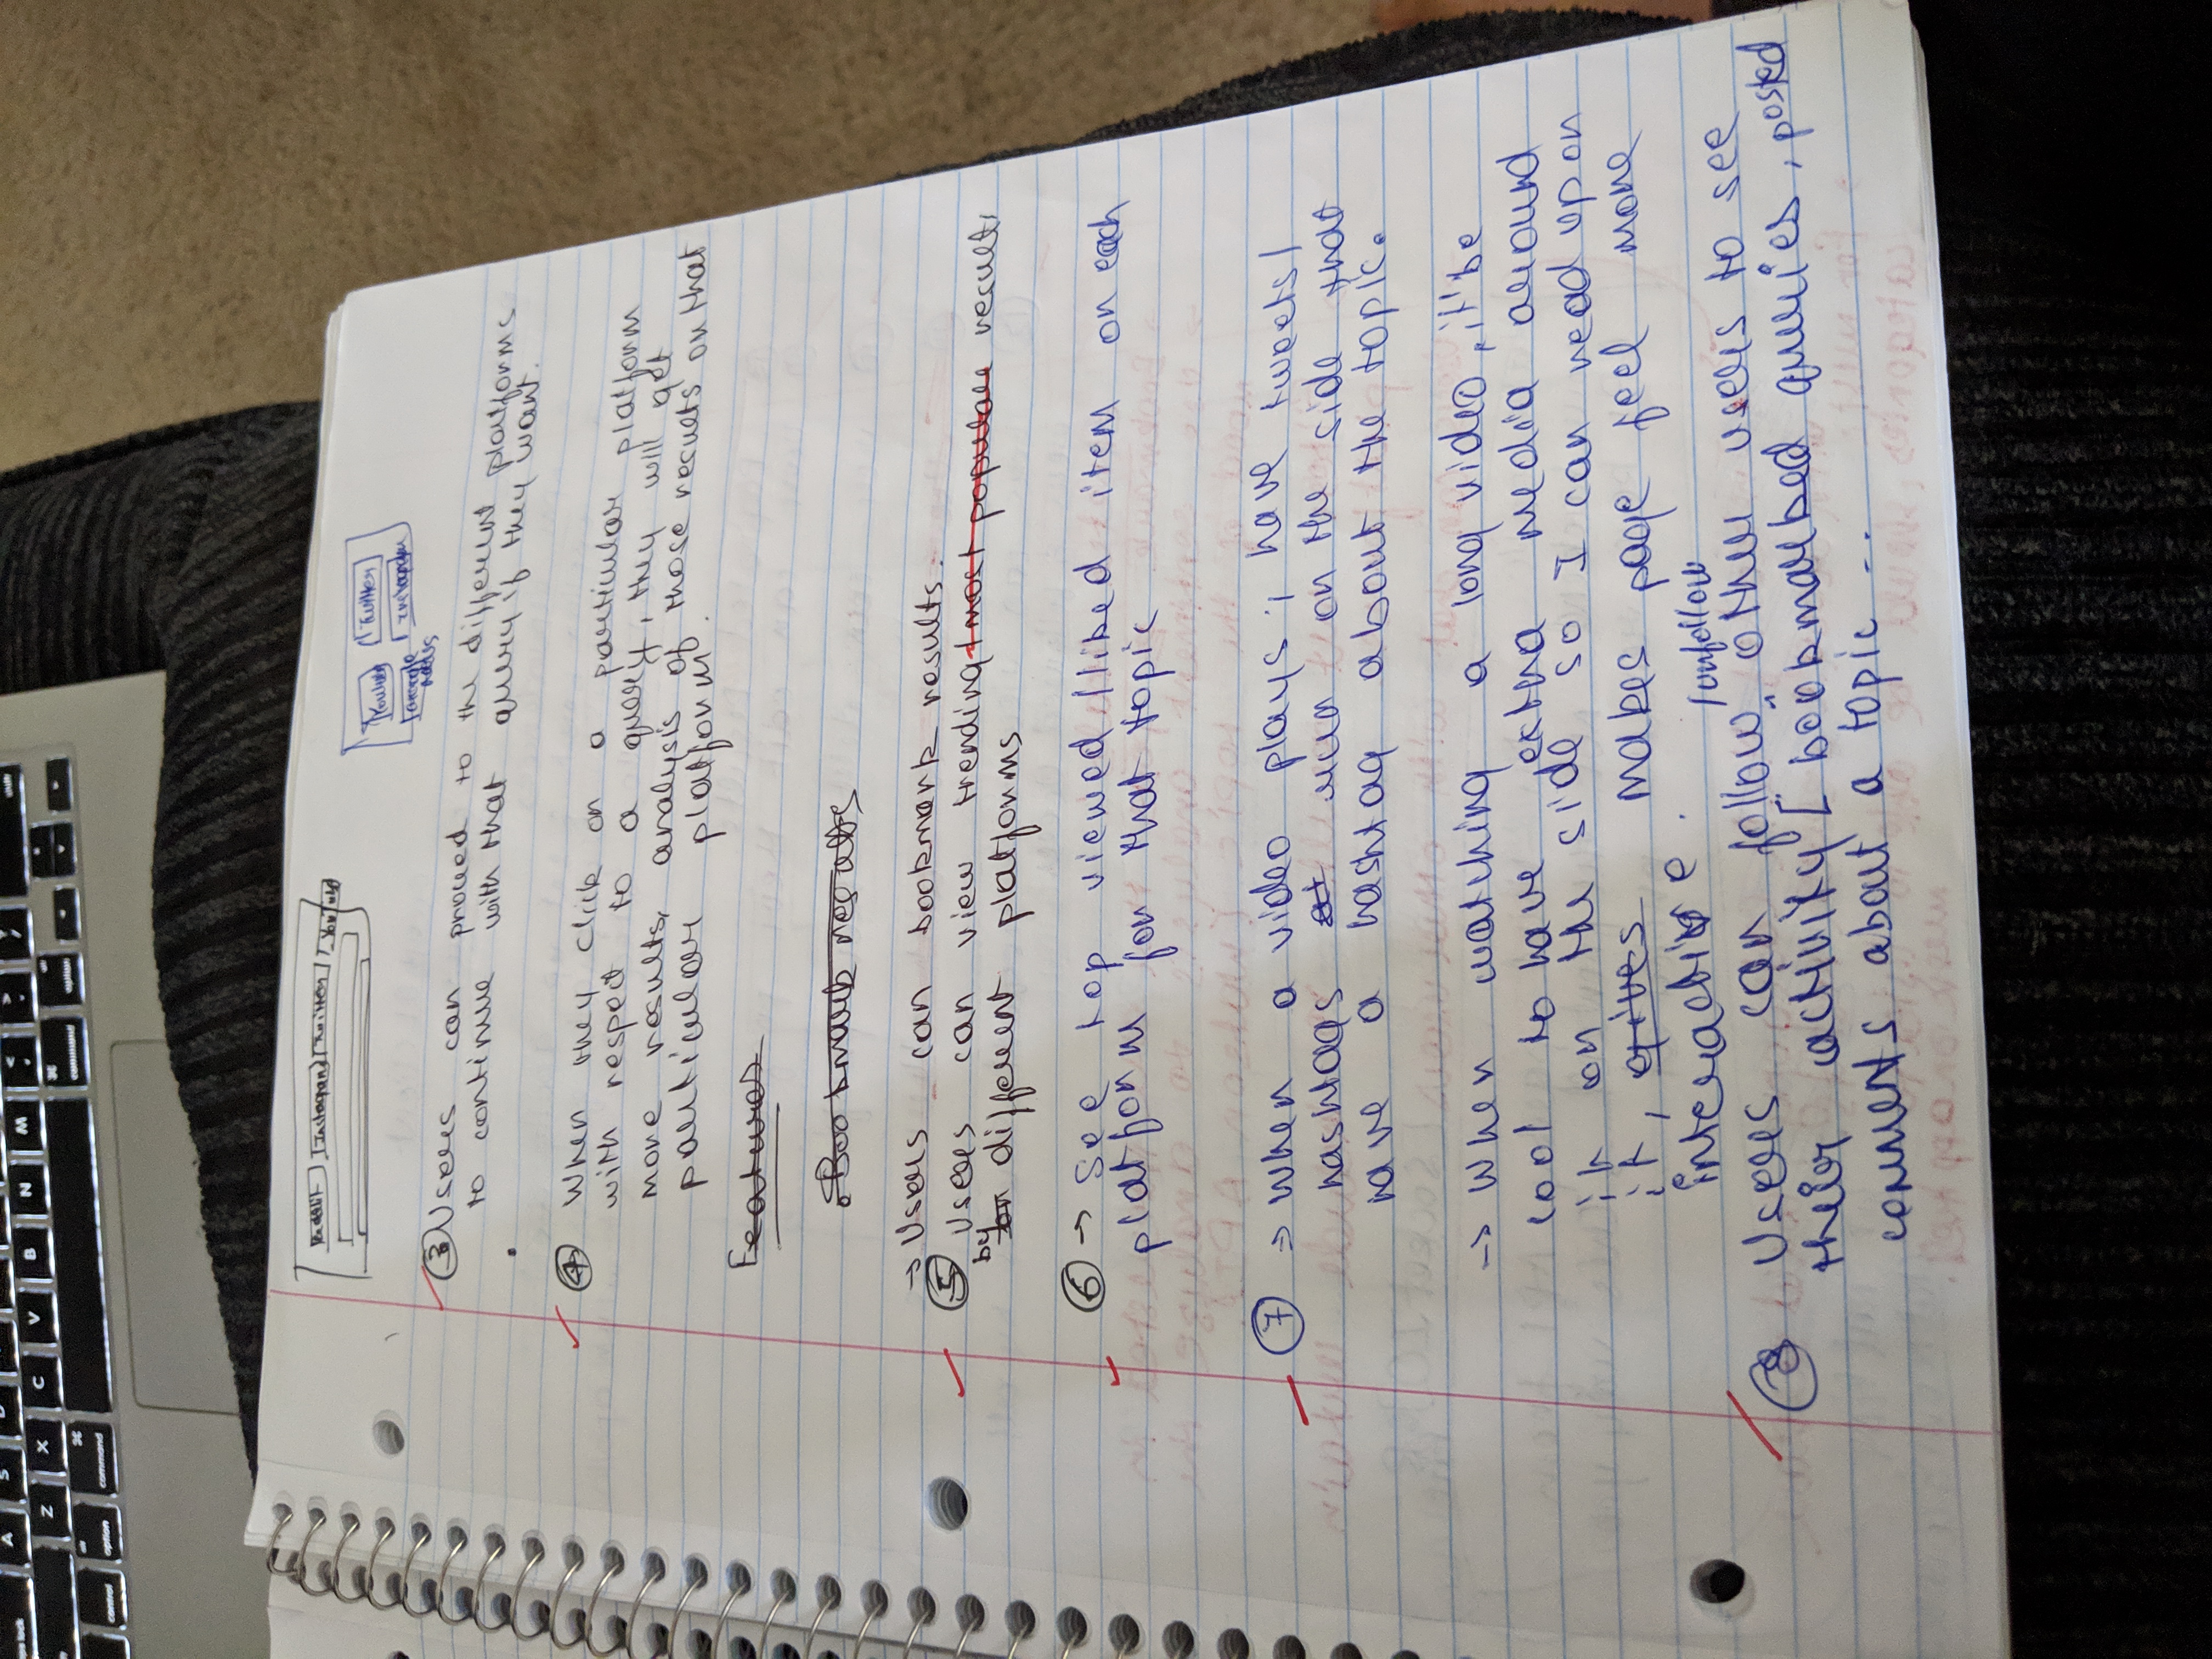 caps lock A S
Z X C V B N M < >
control alt option ⌘ command ⌘ command alt option
shift
Reddit Instagram Twitter YouTube
Twitter
Google Instagram
News
③ Users can proceed to the different platforms
to continue with that query if they want.
④ When they click on a particular platform
with respect to a query, they will get
more results, analysis of those results on that
particular platform.
Features
Bookmark results
→ Users can bookmark results.
⑤ Users can view trending / most popular results
by on different platforms
⑥ → See top viewed / liked item on each
platform for that topic
⑦ → When a video plays, have tweets /
hashtags at run on the side that
have a hashtag about the topic.
→ When watching a long video, it'be
cool to have extra media around
it on the side so I can read up on
it, gives makes page feel more
interactive.
/unfollow
⑧ Users can follow other users to see
their activity [bookmarked queries, posted
comments about a topic ..